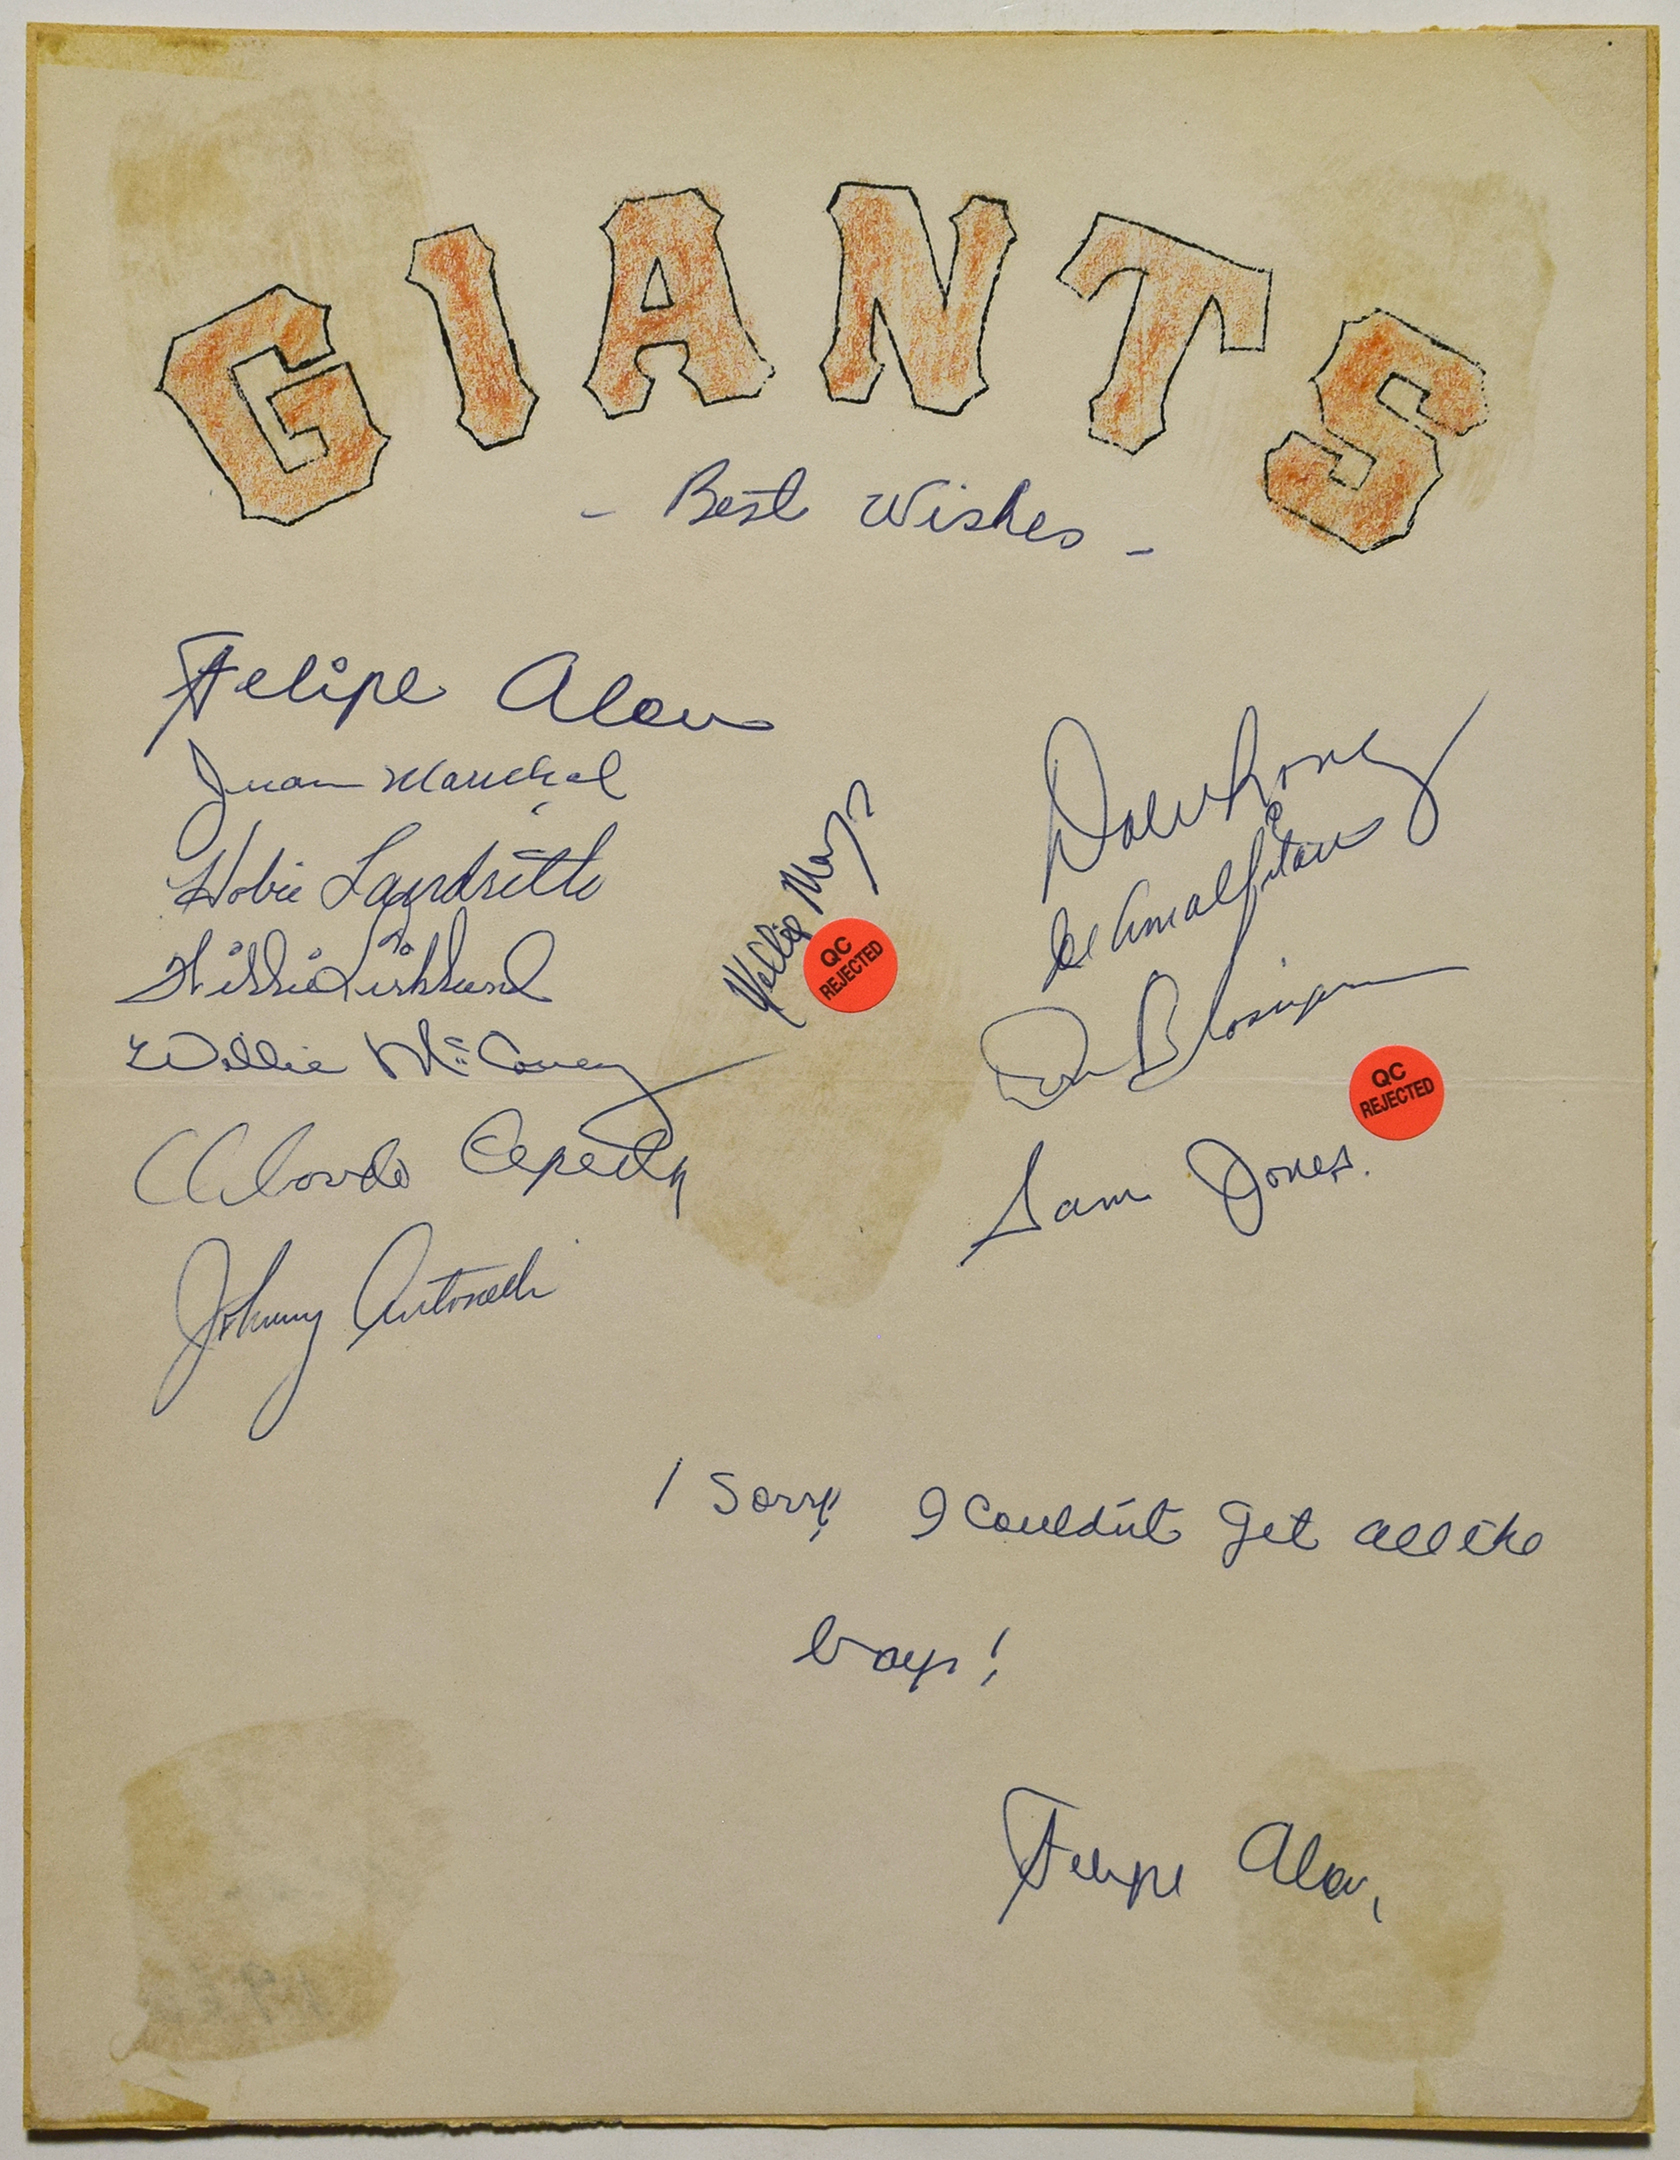 GIANTS
- Best Wishes -
Felipe Alou
Juan Marichal
Hobie Landrith
Willie Kirkland
Willie McCovey
Orlando Cepeda
Johnny Antonelli
Willie Mays
QC
REJECTED
Dave
Joe Amalfitano
Don Blasingame
QC
REJECTED
Sam Jones.
I Sorry! I Couldn't get all the
boys!
Felipe Alou,